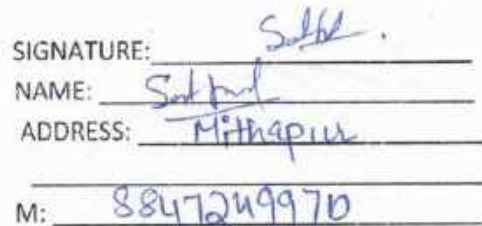 SIGNATURE:
NAME:
ADDRESS: Mithapur
M: 8847249970